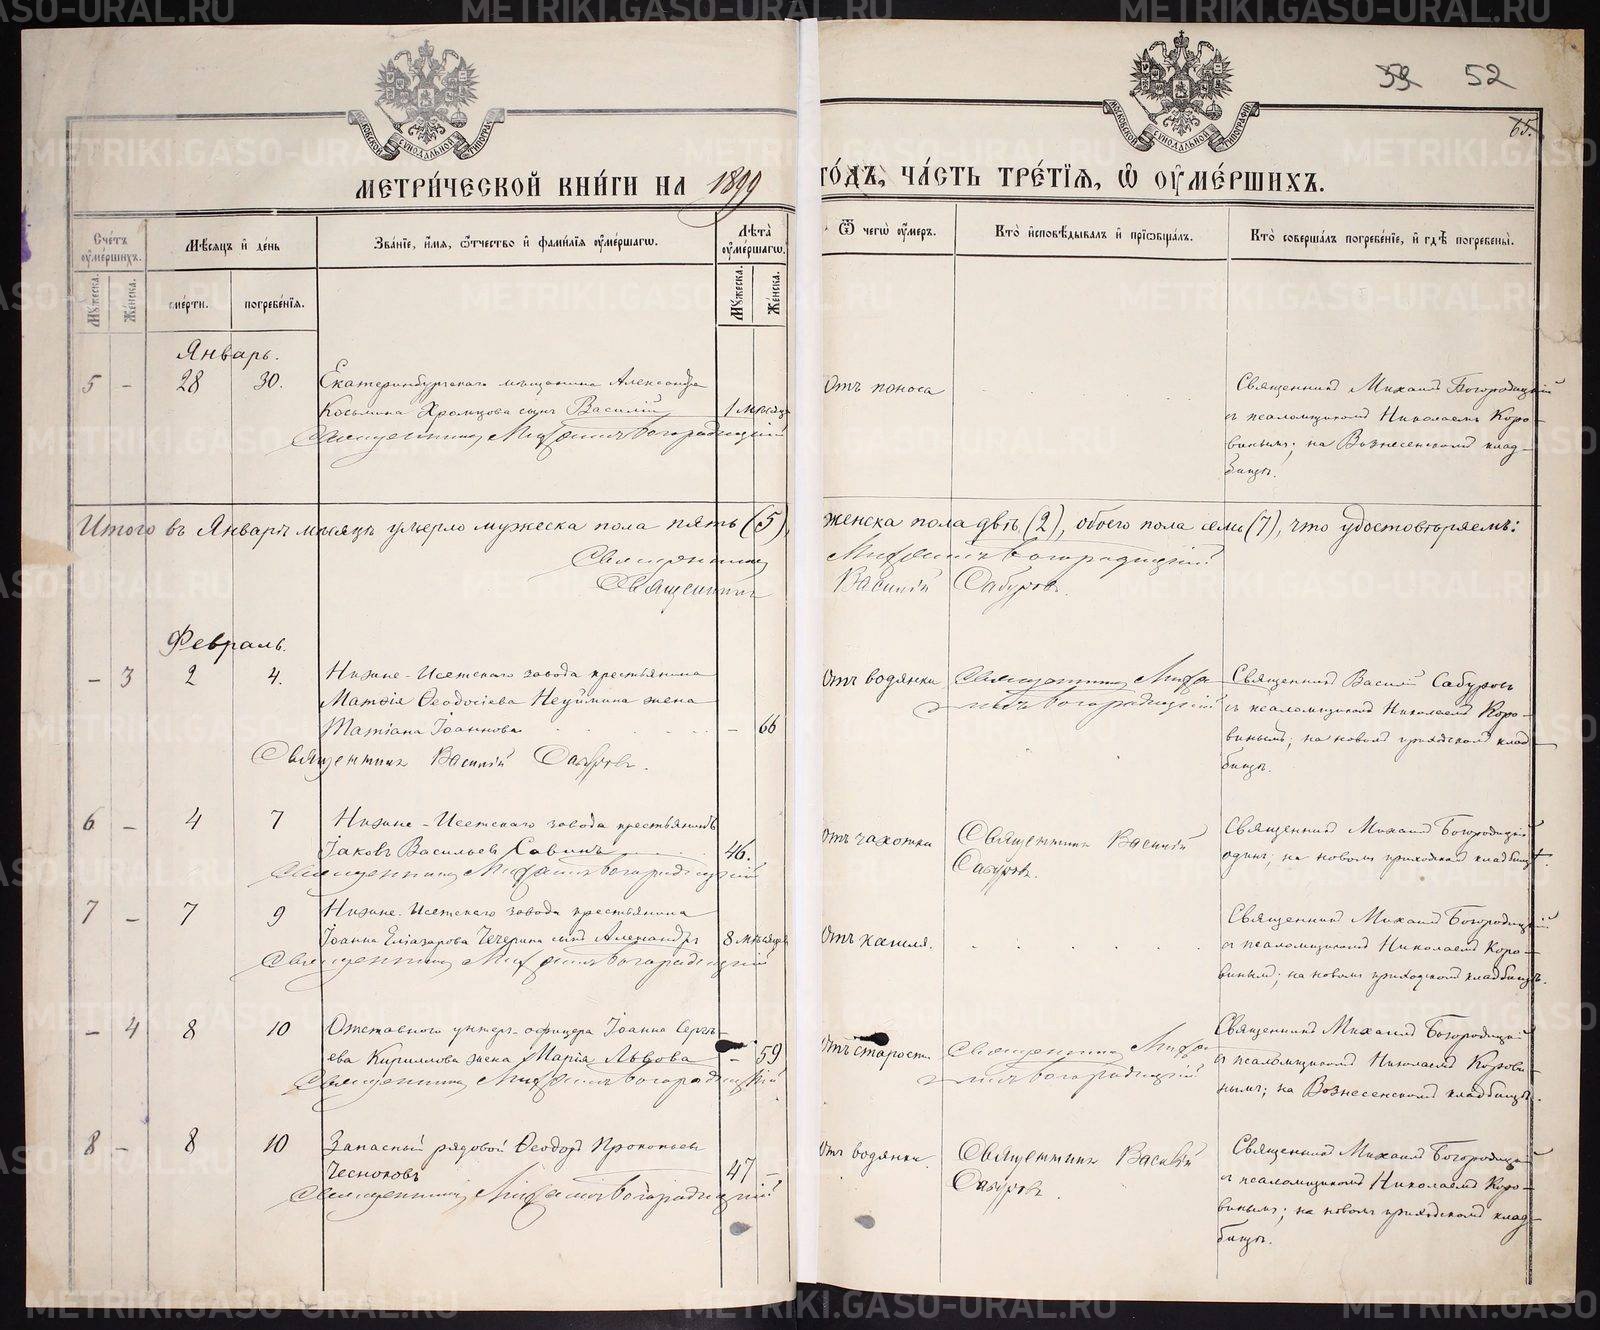 МЕТРИ́ЧЕСКОЙ КНИ́ГИ НА 1899
ГО́ДЪ, ЧА́СТЬ ТРЕ́ТІѦ, Ѡ ОУМЕ́РШИХЪ.
52
65.
Сче́тъ оуме́ршихъ.
Мꙋ́жеска.
Же́нска.
Мѣ́сяцъ и҆ де́нь
сме́рти.
погребе́нїѧ.
Зва́нїе, и҆́мѧ, ѻ҆́тчество и҆ фами́лїѧ оуме́ршагѡ.
Лѣ́та оуме́ршагѡ.
Мꙋ́жеска.
Же́нска.
Ѿ чегѡ̀ оу́меръ.
Кто̀ и҆сповѣ́дывалъ и҆ прїѡбща́лъ.
Кто̀ соверша́лъ погребе́нїе, и҆ гдѣ̀ погребены̀.
Январь.
5 - 28 30.
Екатеринбургскаго мѣщанина Александра
Косьмина Хромцова сынъ Василій 1 мѣсяцъ
Священникъ Михаилъ Богородицкій
Отъ поноса
Священникъ Михаилъ Богородицкій
съ псаломщикомъ Николаемъ Коро-
винымъ; на Вознесенскомъ клад-
бищѣ.
Итого въ Январѣ мѣсяцѣ умерло мужеска пола пять (5), женска пола двѣ (2), обоего пола семь (7), что удостовѣряемъ:
Священникъ Михаилъ Богородицкій
Священникъ Василій Сабуровъ.
Февраль.
- 3 2 4.
Нижне-Исетскаго завода крестьянина
Матѳія Ѳеодосіева Неуймина жена
Татіана Іоаннова - 66
Священникъ Василій Сабуровъ.
Отъ водянки
Священникъ Миха-
илъ Богородицкій
Священникъ Василій Сабуровъ
съ псаломщикомъ Николаемъ Коро-
винымъ; на новомъ приходскомъ клад-
бищѣ.
6 - 4 7
Нижне-Исетскаго завода крестьянинъ
Іаковъ Васильевъ Савинъ 46.
Священникъ Михаилъ Богородицкій
Отъ чахотки
Священникъ Василій
Сабуровъ.
Священникъ Михаилъ Богородицкій
одинъ, на новомъ приходскомъ кладбищѣ.
7 - 7 9
Нижне-Исетскаго завода крестьянина
Іоанна Еліазарова Чечерина сынъ Александръ 8 мѣсяцевъ
Священникъ Михаилъ Богородицкій
Отъ кашля.
Священникъ Михаилъ Богородицкій
съ псаломщикомъ Николаемъ Коро-
винымъ; на новомъ приходскомъ кладбищѣ.
- 4 8 10
Отставного унтеръ-офицера Іоанна Сергѣ-
ева Кириллова жена Марія Львова - 59
Священникъ Михаилъ Богородицкій
Отъ старости
Священникъ Миха-
илъ Богородицкій
Священникъ Михаилъ Богородицкій
съ псаломщикомъ Николаемъ Корови-
нымъ; на Вознесенскомъ кладбищѣ.
8 - 8 10
Запасный рядовой Ѳеодоръ Прокопьевъ
Чесноковъ 47 -
Священникъ Михаилъ Богородицкій
Отъ водянки.
Священникъ Василій
Сабуровъ.
Священникъ Михаилъ Богородицкій
съ псаломщикомъ Николаемъ Коро-
винымъ; на новомъ приходскомъ клад-
бищѣ.
METRIKI.GASO-URAL.RU